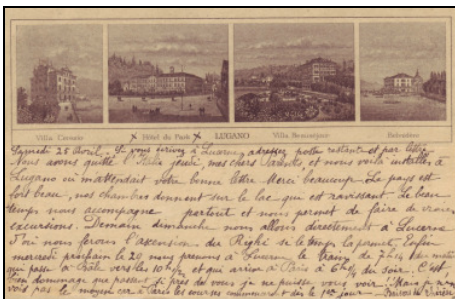 Villa Ceresio × Hôtel du Park × LUGANO Villa Beauséjour Belvédère
Samedi 25 Avril. Si vous écrivez à Lucerne, adressez poste restante et par lettre
Nous avons quitté l'Italie jeudi, mes chers Parents et nous voilà installés à
Lugano où m'attendait votre bonne lettre Merci beaucoup. Le pays est
fort beau, nos chambres donnent sur le lac qui est ravissant. Le beau
temps nous accompagne partout et nous permet de faire de vraies
excursions. Demain dimanche nous allons directement à Lucerne
d'où nous ferons l'ascension du Righi si le temps le permet. Enfin
mercredi prochain le 29 nous prenons à Lucerne le train de du matin
qui passe à Bâle vers les 10h½ et qui arrive à Paris à 6h du Soir. C'est
bien dommage que passant si près de vous je ne puisse vous voir. Mais je ne
vois pas le moyen car à Paris les courses commencent dès le 1er jour